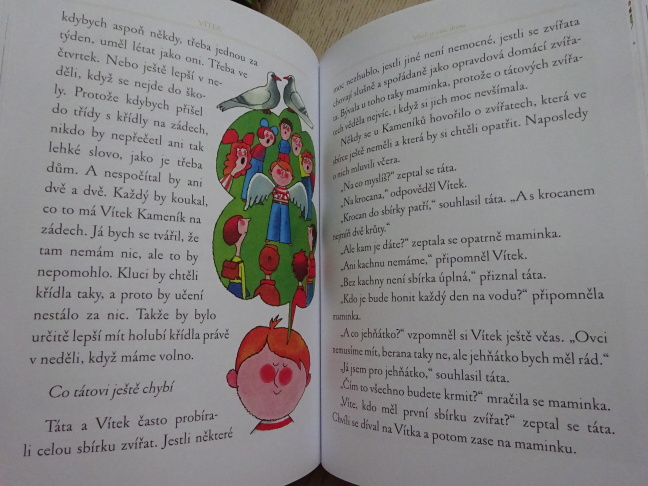 VÍTEK
kdybych aspoň někdy, třeba jednou za
týden, uměl létat jako oni. Třeba ve
čtvrtek. Nebo ještě lepší v ne-
děli, když se nejde do ško-
ly. Protože kdybych přišel
do třídy s křídly na zádech,
nikdo by nepřečetl ani tak
lehké slovo, jako je třeba
dům. A nespočítal by ani
dvě a dvě. Každý by koukal,
co to má Vítek Kameník na
zádech. Já bych se tvářil, že
tam nemám nic, ale to by
nepomohlo. Kluci by chtěli
křídla taky, a proto by učení
nestálo za nic. Takže by bylo
určitě lepší mít holubí křídla právě
v neděli, když máme volno.
Co tátovi ještě chybí
Táta a Vítek často probíra-
li celou sbírku zvířat. Jestli některé
moc nezhublo, jestli jiné není nemocné, jestli se zvířata
chovají slušně a spořádaně jako opravdová domácí zvířa-
ta. Bývala u toho taky maminka, protože o tátových zvířa-
tech věděla nejvíc, i když si jich moc nevšímala.
Někdy se u Kameníků hovořilo o zvířatech, která ve
sbírce ještě neměli a která by si chtěli opatřit. Naposledy
o nich mluvili včera.
„Na co myslíš?“ zeptal se táta.
„Na krocana,“ odpověděl Vítek.
„Krocan do sbírky patří,“ souhlasil táta. „A s krocanem
nejmíň dvě krůty.“
„Ale kam je dáte?“ zeptala se opatrně maminka.
„Ani kachnu nemáme,“ připomněl Vítek.
„Bez kachny není sbírka úplná,“ přiznal táta.
„Kdo je bude honit každý den na vodu?“ připomněla
maminka.
„A co jehňátko?“ vzpomněl si Vítek ještě včas. „Ovci
nemusíme mít, berana taky ne, ale jehňátko bych měl rád.“
„Já jsem pro jehňátko,“ souhlasil táta.
„Čím to všechno budete krmit?“ mračila se maminka.
„Víte, kdo měl první sbírku zvířat?“ zeptal se táta.
Chvíli se díval na Vítka a potom zase na maminku.